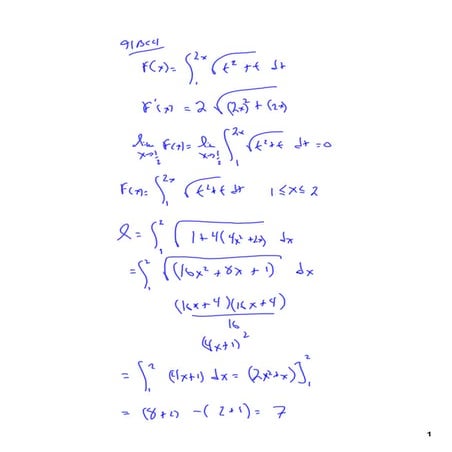 91BC4
F(x) = ∫₁^{2x} √(t² + t) dt
F'(x) = 2 √((2x)² + (2x))
lim_{x→½} F(x) = lim_{x→½} ∫₁^{2x} √(t² + t) dt = 0
F(x) = ∫₁^{2x} √(t² + t) dt 1 ≤ x ≤ 2
l = ∫₁² √(1 + 4(4x² + 2x)) dx
= ∫₁² √(16x² + 8x + 1) dx
(16x + 4)(16x + 4)
16
(4x + 1)²
= ∫₁² (4x + 1) dx = (2x² + x)]₁²
= (8 + 2) - (2 + 1) = 7
1